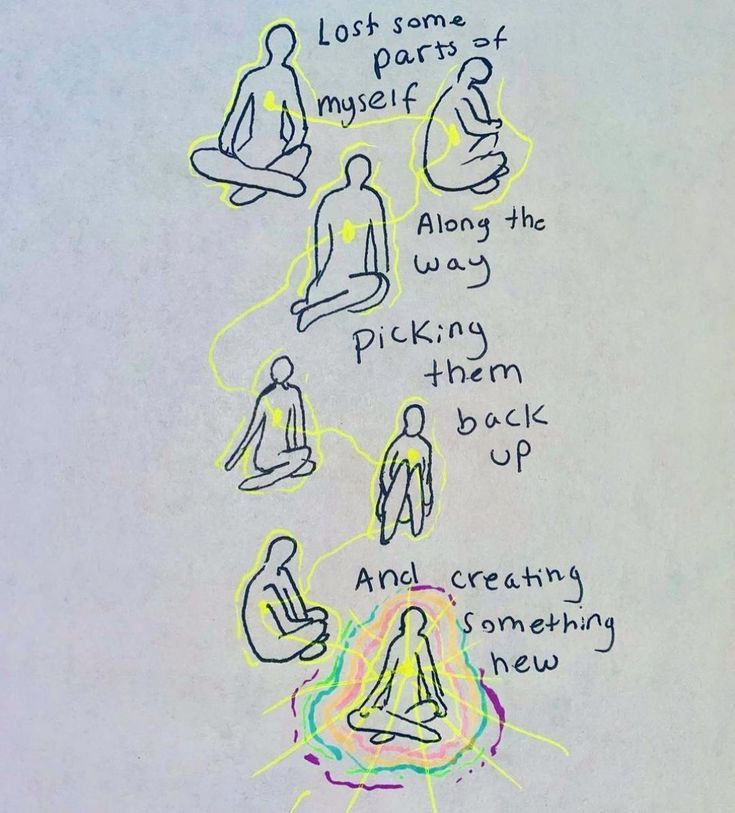 Lost some
parts of
myself
Along the
way
picking
them
back
up
And creating
something
new